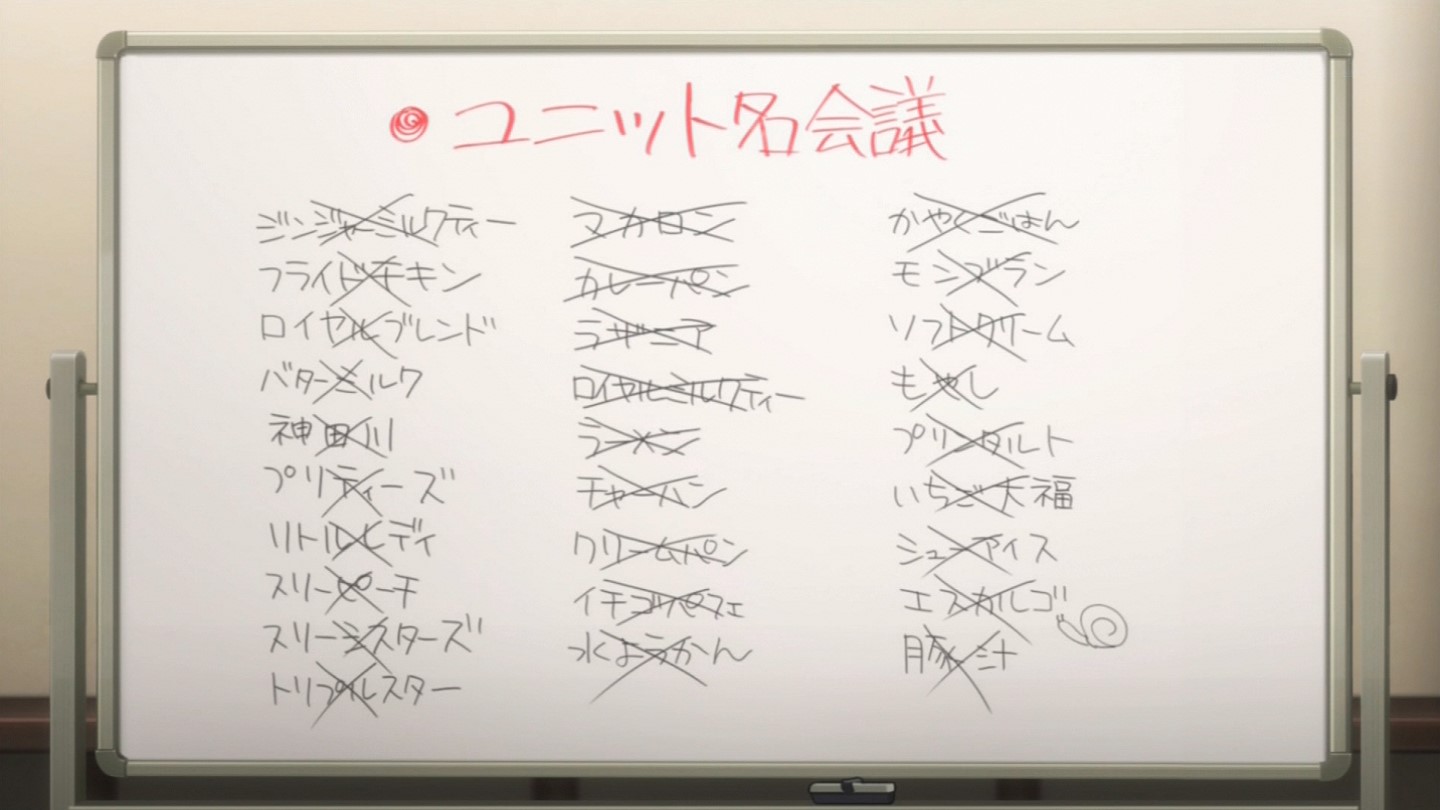 ユニット名会議
ジンジャーミルクティー
フライドチキン
ロイヤルブレンド
バターミルク
神田川
プリティーズ
リトルレディ
スリーピーチ
スリーシスターズ
トリプルスター
マカロン
カレーパン
ラザニア
ロイヤルミルクティー
ラーメン
チャーハン
クリームパン
イチゴパフェ
水ようかん
かやくごはん
モンブラン
ソフトクリーム
もやし
プリンタルト
いちご大福
シューアイス
エスカルゴ
豚汁